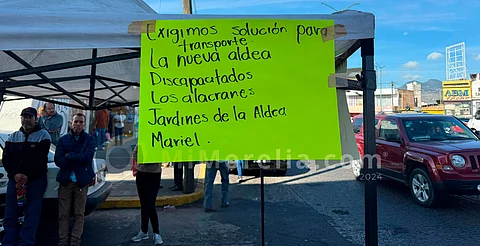 Exigimos solución para
transporte
La nueva aldea
Discapacitados
Los alacranes
Jardines de la Aldea
Mariel.
MiMorelia.com
2024